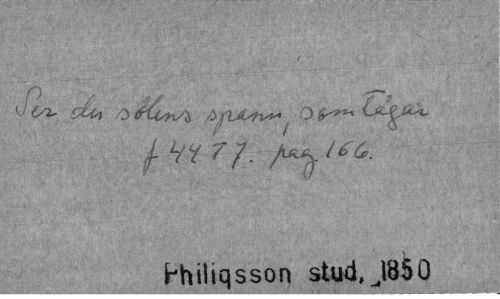 Ser du solens spann, som tågar
f 44 T 7. pag. 166.
Philiqsson stud, 1850